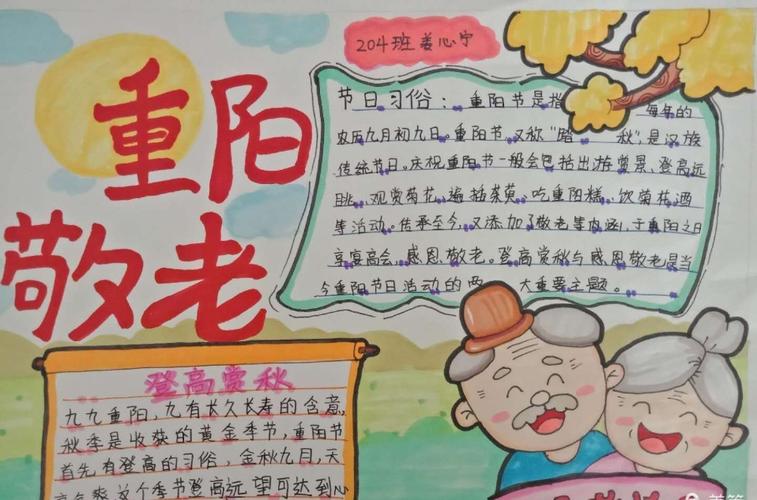 重阳
敬老
204班姜心宁
节日习俗：重阳节是指 每年的
农历九月初九日。重阳节，又称"踏 秋"，是汉族
传统节日。庆祝重阳节一般会包括出游赏景、登高远
眺、观赏菊花、遍插茱萸、吃重阳糕、饮菊花酒
等活动。传承至今，又添加了敬老等内涵，于重阳之日
享宴高会，感恩敬老。登高赏秋与感恩敬老是当
今重阳节日活动的两 大重要主题。
登高赏秋
九九重阳，九有长久长寿的含意，
秋季是收获的黄金季节，重阳节
首先有登高的习俗，金秋九月，天
高气爽，这个季节登高远望可达到心